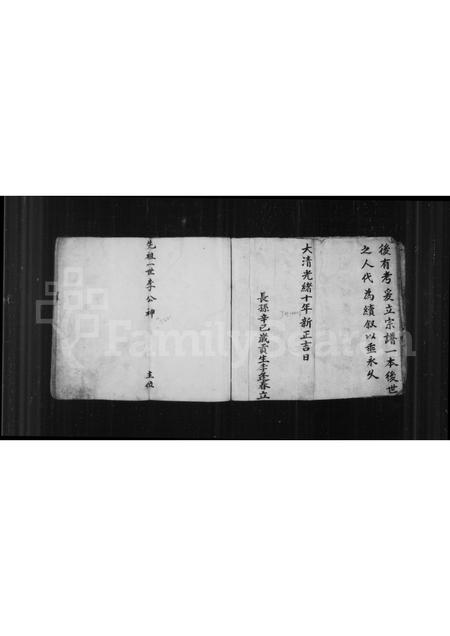 後有考爰立宗譜一本後世
之人代為續叙以垂永久
大清光緒十年新正吉日
長孫辛巳歲貢生李蓬春立
先祖一世李公神
主位
FamilySearch